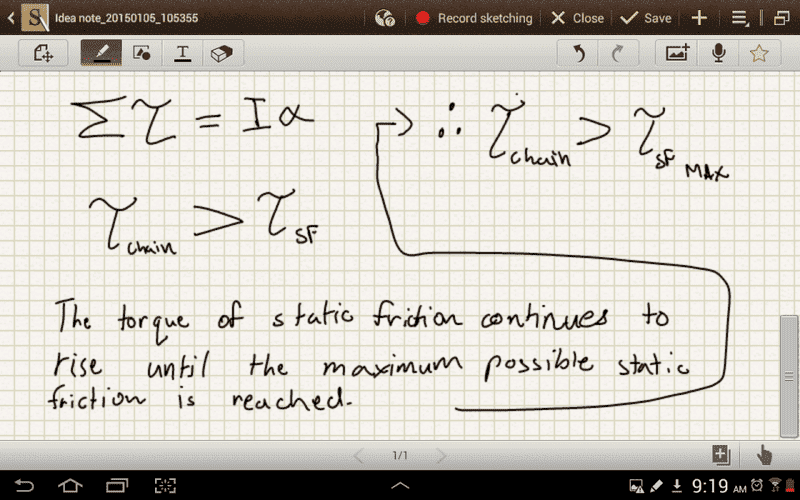 Idea note_20150105_105355
Record sketching
Close
Save
Στ = Iα
∴ τchain > τSF MAX
τchain > τSF
The torque of static friction continues to
rise until the maximum possible static
friction is reached.
1/1
9:19 AM